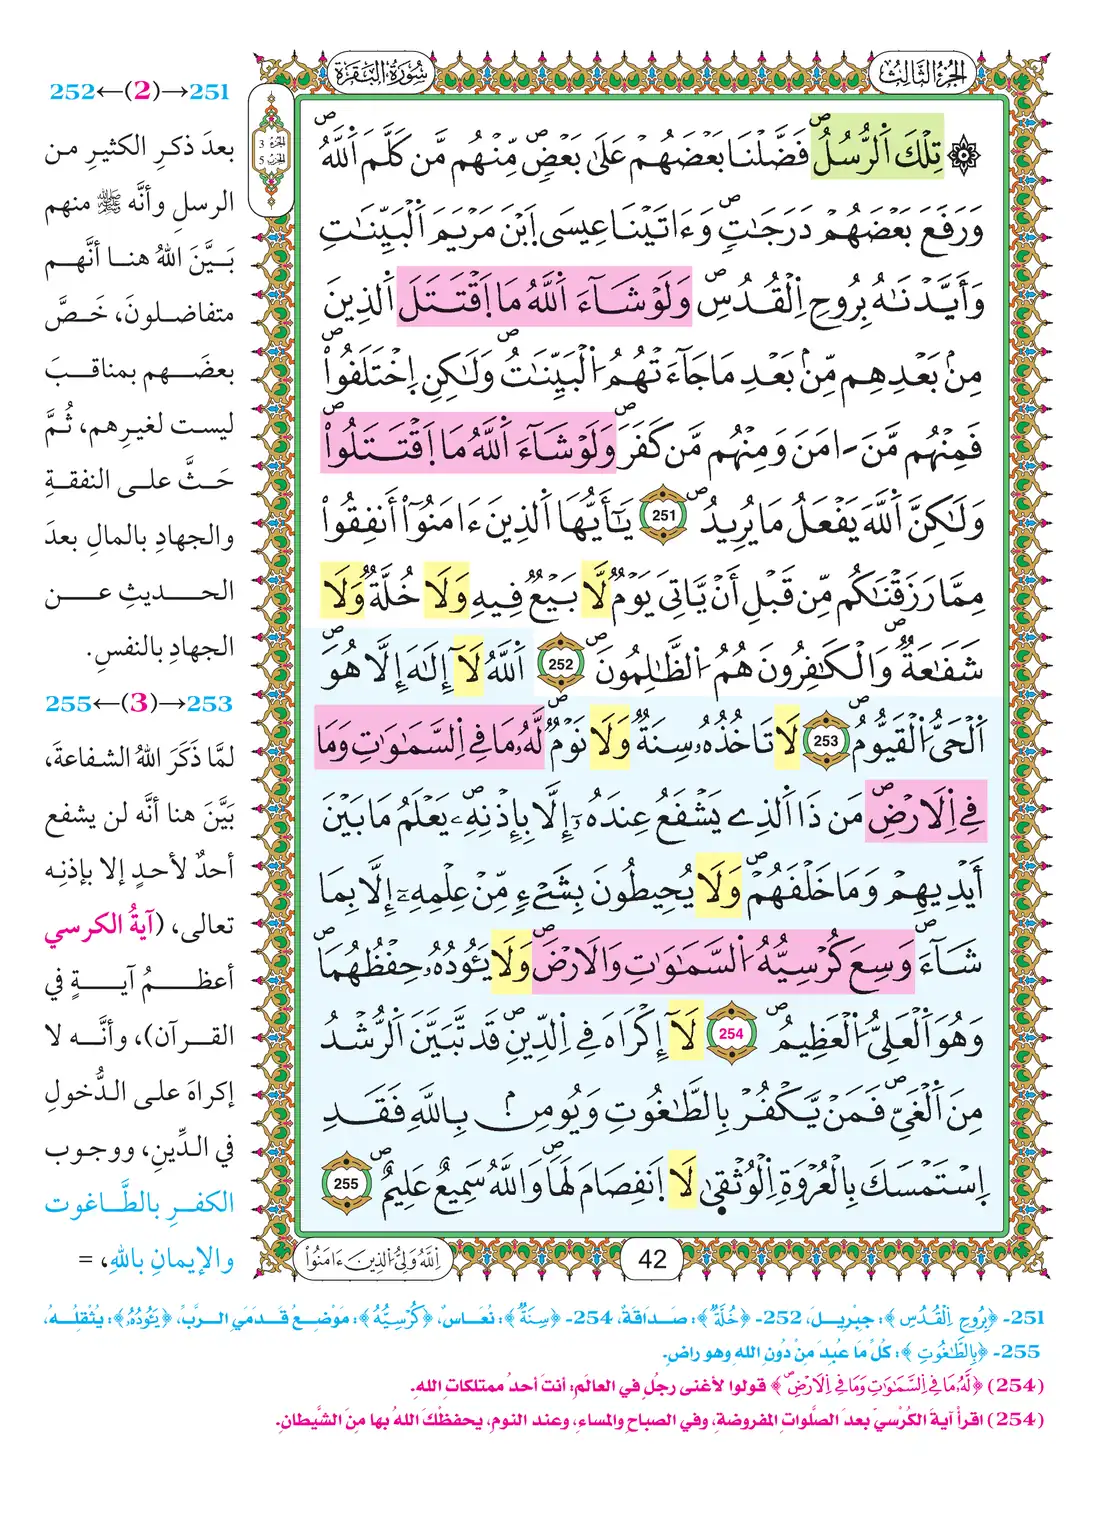 الجزء الثالث
سورة البقرة
الجزء 3
الحزب 5
۞ تِلْكَ اَ۬لرُّسُلُ فَضَّلْنَا بَعْضَهُمْ عَلَىٰ بَعْضٖۖ مِّنْهُم مَّن كَلَّمَ اَ۬للَّهُۖ
وَرَفَعَ بَعْضَهُمْ دَرَجَٰتٖۖ وَءَاتَيْنَا عِيسَى اَ۪بْنَ مَرْيَمَ اَ۬لْبَيِّنَٰتِ
وَأَيَّدْنَٰهُ بِرُوحِ اِ۬لْقُدُسِۖ وَلَوْ شَآءَ اَ۬للَّهُ مَا اَ۪قْتَتَلَ اَ۬لذِينَ
مِنۢ بَعْدِهِم مِّنۢ بَعْدِ مَا جَآءَتْهُمُ اُ۬لْبَيِّنَٰتُۖ وَلَٰكِنِ اِ۪خْتَلَفُواْۖ
فَمِنْهُم مَّنَ اٰمَنَ وَمِنْهُم مَّن كَفَرَۖ وَلَوْ شَآءَ اَ۬للَّهُ مَا اَ۪قْتَتَلُواْۖ
وَلَٰكِنَّ اَ۬للَّهَ يَفْعَلُ مَا يُرِيدُۖ 251 يَٰٓأَيُّهَا اَ۬لذِينَ ءَامَنُوٓاْ أَنفِقُواْ
مِمَّا رَزَقْنَٰكُم مِّن قَبْلِ أَنْ يَّاتِيَ يَوْمٞ لَّا بَيْعٞ فِيهِ وَلَا خُلَّةٞ وَلَا
شَفَٰعَةٞۖ وَالْكَٰفِرُونَ هُمُ اُ۬لظَّٰلِمُونَۖ 252 اَ۬للَّهُ لَآ إِلَٰهَ إِلَّا هُوَۖ
اَ۬لْحَيُّ اُ۬لْقَيُّومُۖ 253 لَا تَاخُذُهُۥ سِنَةٞ وَلَا نَوْمٞۖ لَّهُۥ مَا فِي اِ۬لسَّمَٰوَٰتِ وَمَا
فِي اِ۬لَارْضِۖ مَن ذَا اَ۬لذِے يَشْفَعُ عِندَهُۥٓ إِلَّا بِإِذْنِهِۦۖ يَعْلَمُ مَا بَيْنَ
أَيْدِيهِمْ وَمَا خَلْفَهُمْۖ وَلَا يُحِيطُونَ بِشَےْءٖ مِّنْ عِلْمِهِۦٓ إِلَّا بِمَا
شَآءَۖ وَسِعَ كُرْسِيُّهُ اُ۬لسَّمَٰوَٰتِ وَالَارْضَۖ وَلَا يَـُٔودُهُۥ حِفْظُهُمَاۖ
وَهُوَ اَ۬لْعَلِيُّ اُ۬لْعَظِيمُۖ 254 لَآ إِكْرَاهَ فِي اِ۬لدِّينِۖ قَد تَّبَيَّنَ اَ۬لرُّشْدُ
مِنَ اَ۬لْغَيِّۖ فَمَنْ يَّكْفُرْ بِالطَّٰغُوتِ وَيُومِنۢ بِاللَّهِ فَقَدِ
اِ۪سْتَمْسَكَ بِالْعُرْوَةِ اِ۬لْوُثْقَىٰ لَا اَ۪نفِصَامَ لَهَاۖ وَاللَّهُ سَمِيعٌ عَلِيمٌۖ 255
42
اَ۬للَّهُ وَلِيُّ اُ۬لذِينَ ءَامَنُواْ
251→(2)←252
بعدَ ذكرِ الكثيرِ من
الرسلِ وأنَّه ﷺ منهم
بَيَّنَ اللهُ هنا أنَّهم
متفاضلونَ، خَصَّ
بعضَهم بمناقبَ
ليست لغيرِهم، ثُمَّ
حَثَّ على النفقةِ
والجهادِ بالمالِ بعدَ
الحديثِ عن
الجهادِ بالنفسِ.
253→(3)←255
لمَّا ذَكَرَ اللهُ الشفاعةَ،
بَيَّنَ هنا أنَّه لن يشفع
أحدٌ لأحدٍ إلا بإذنِه
تعالى، (آيةُ الكرسي
أعظمُ آيةٍ في
القرآن)، وأنَّه لا
إكراهَ على الدُّخولِ
في الدِّينِ، ووجوب
الكفرِ بالطَّاغوت
والإيمانِ باللهِ، =
251- ﴿بِرُوحِ اِ۬لْقُدُسِ﴾: جِبْرِيلَ، 252- ﴿خُلَّةٞ﴾: صَدَاقَةٌ، 254- ﴿سِنَةٞ﴾: نُعَاسٌ، ﴿كُرْسِيُّهُ﴾: مَوْضِعُ قَدَمَيِ الرَّبِّ، ﴿يَـُٔودُهُۥ﴾: يُثْقِلُهُ،
255- ﴿بِالطَّٰغُوتِ﴾: كُلِّ مَا عُبِدَ مِنْ دُونِ اللهِ وهو راضٍ.
(254) ﴿لَّهُۥ مَا فِي اِ۬لسَّمَٰوَٰتِ وَمَا فِي اِ۬لَارْضِۖ﴾ قولوا لأغنى رجُلٍ في العالَمِ: أنتَ أحدُ ممتلكاتِ اللهِ.
(254) اقرأْ آيةَ الكُرْسيِّ بعدَ الصَّلواتِ المفروضةِ، وفي الصباحِ والمساءِ، وعندِ النومِ، يحفظْكَ اللهُ بها منَ الشَّيطانِ.